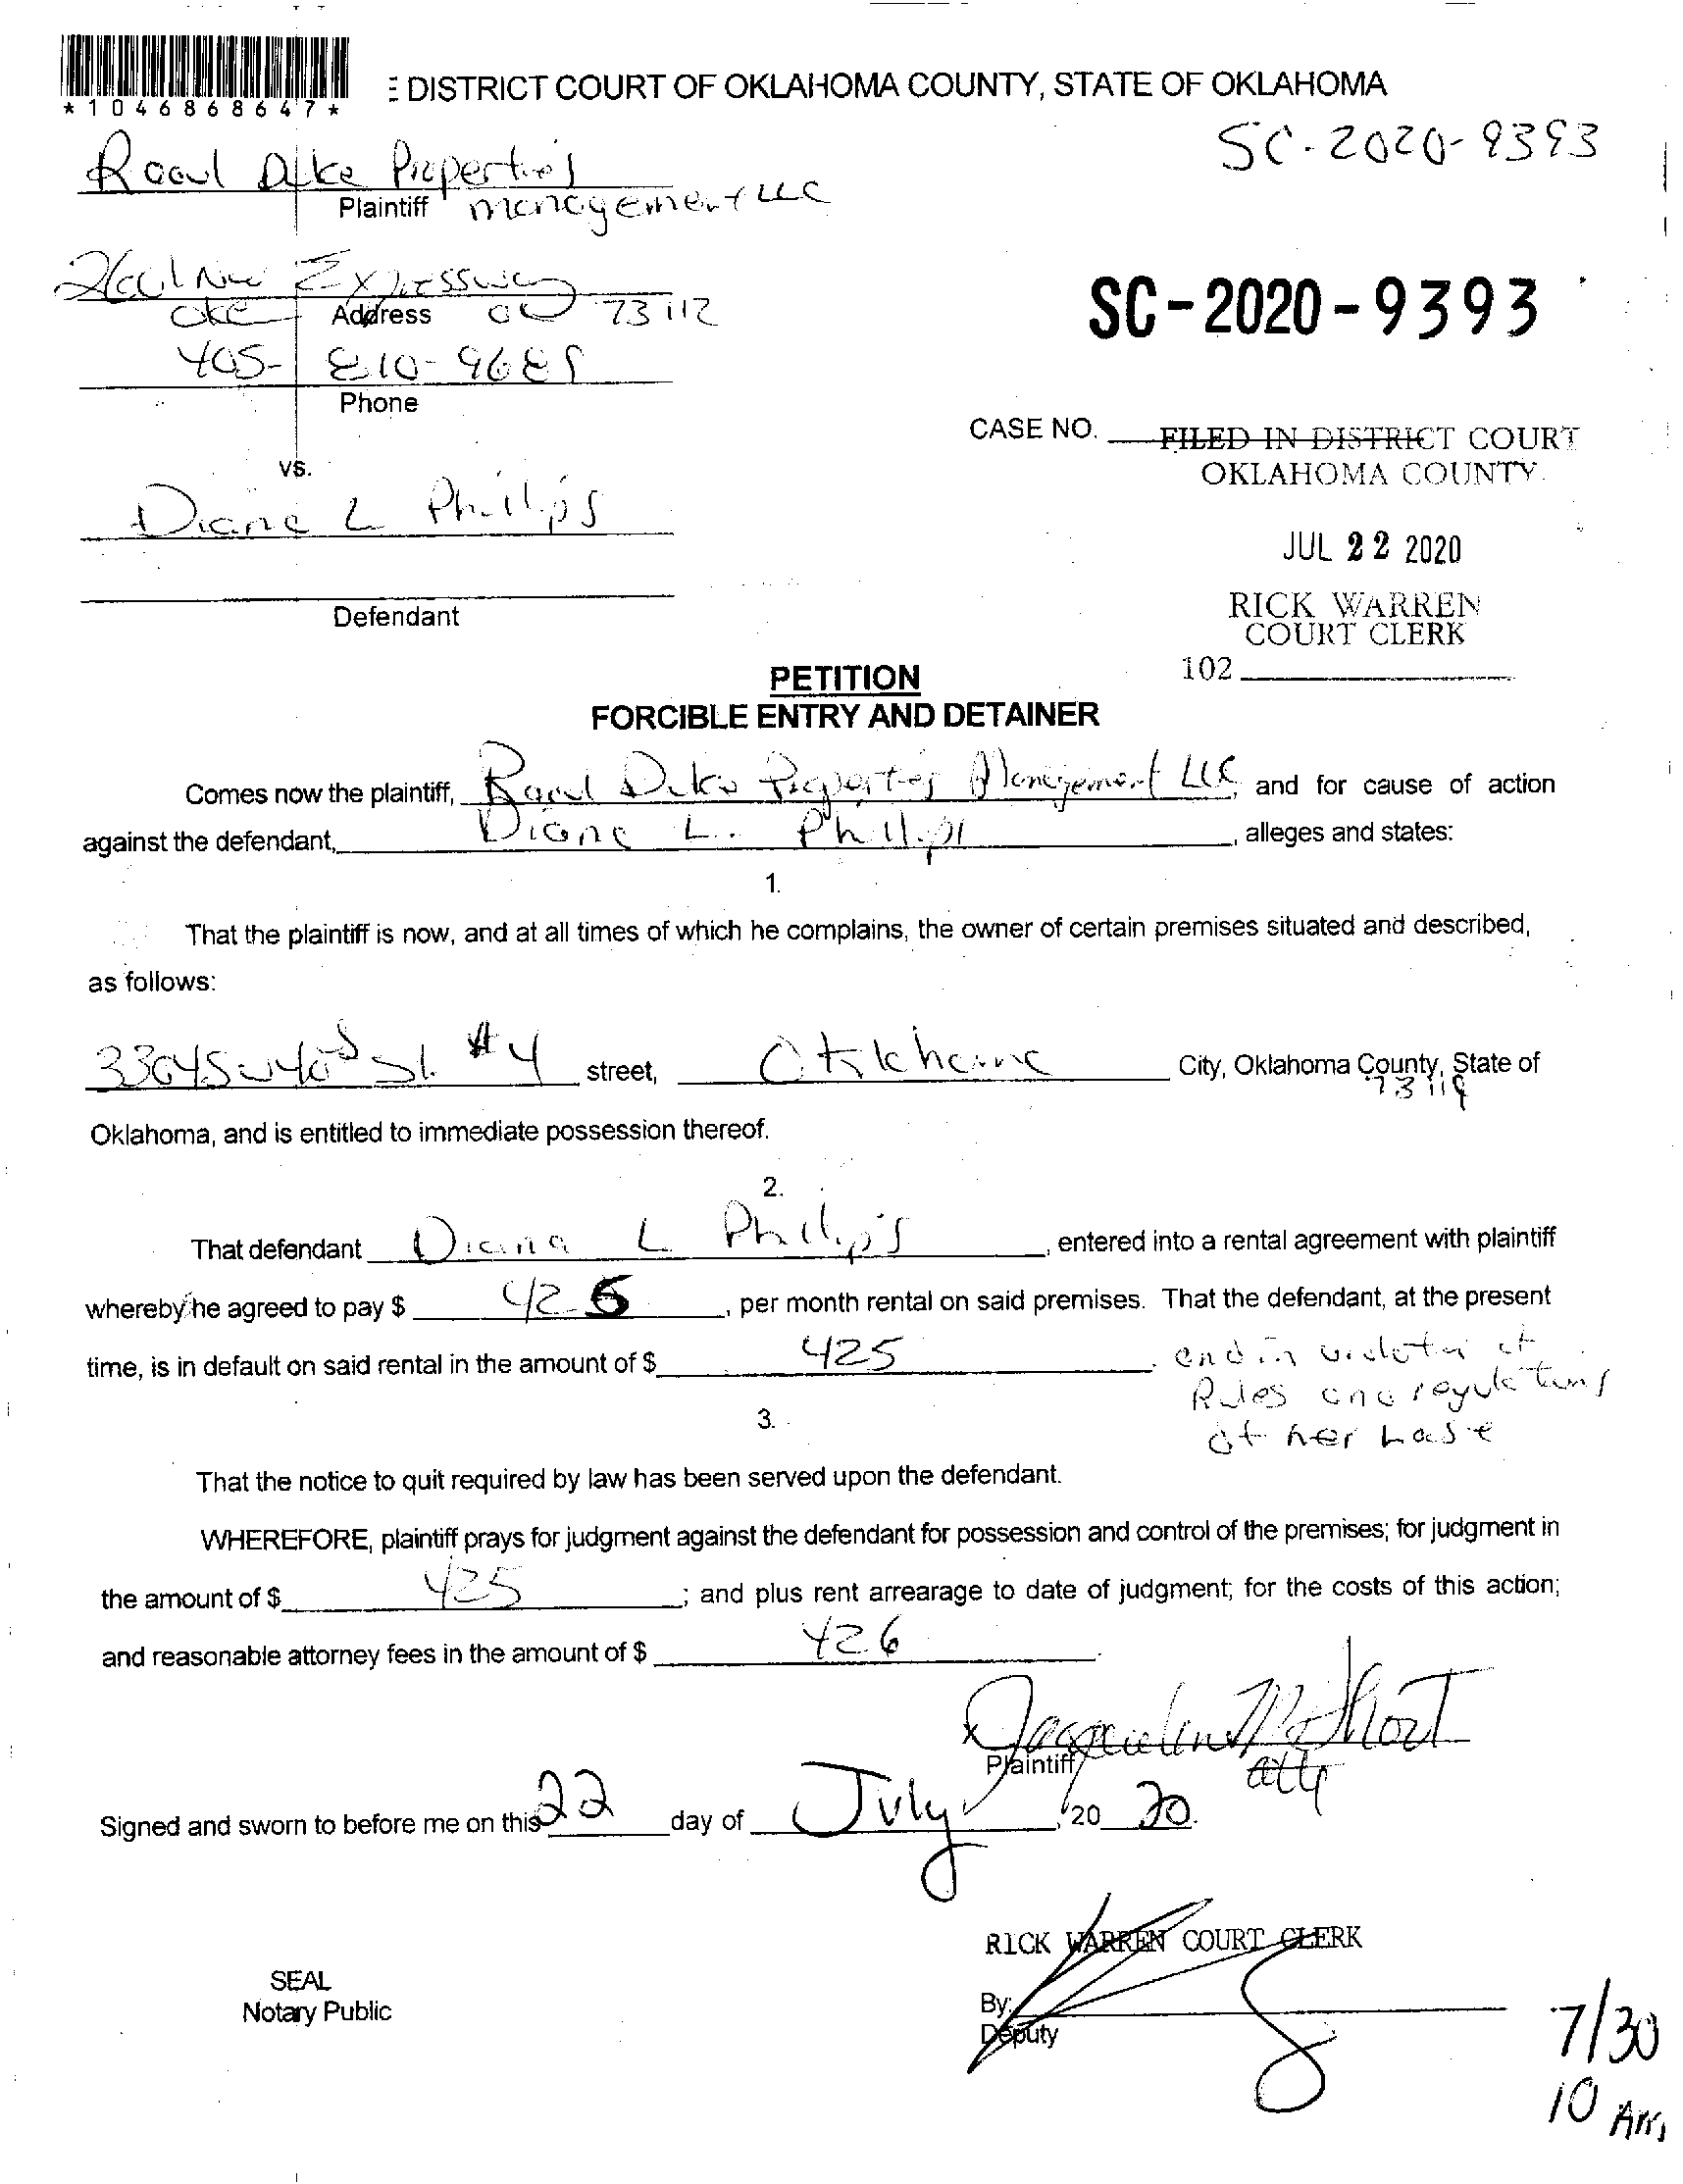 *1046868647*
E DISTRICT COURT OF OKLAHOMA COUNTY, STATE OF OKLAHOMA
SC-2020-9393
Raoul Duke Properties
Plaintiff management LLC
Expressway
OKC Address OK 73112
405- 810-9689
Phone
SC-2020-9393
CASE NO.
FILED IN DISTRICT COURT
OKLAHOMA COUNTY
vs.
Diane L Phillips
JUL 22 2020
Defendant
RICK WARREN
COURT CLERK
102
PETITION
FORCIBLE ENTRY AND DETAINER
Comes now the plaintiff, Raoul Duke Properties Management LLC, and for cause of action
against the defendant, Diane L. Phillips, alleges and states:
1.
That the plaintiff is now, and at all times of which he complains, the owner of certain premises situated and described,
as follows:
3304 SW 40 St. #4 street, Oklahoma City, Oklahoma County, State of
73119
Oklahoma, and is entitled to immediate possession thereof.
2.
That defendant Diana L Phillips, entered into a rental agreement with plaintiff
whereby he agreed to pay $ 425, per month rental on said premises. That the defendant, at the present
time, is in default on said rental in the amount of $ 425. and in violation of
Rules and regulations
of her Lease
3.
That the notice to quit required by law has been served upon the defendant.
WHEREFORE, plaintiff prays for judgment against the defendant for possession and control of the premises; for judgment in
the amount of $ 425; and plus rent arrearage to date of judgment; for the costs of this action;
and reasonable attorney fees in the amount of $ 426.
x Jacqueline M Short
Plaintiff atty
Signed and sworn to before me on this 22 day of July, 20 20.
RICK WARREN COURT CLERK
SEAL
Notary Public
By:
Deputy
7/30
10 Am